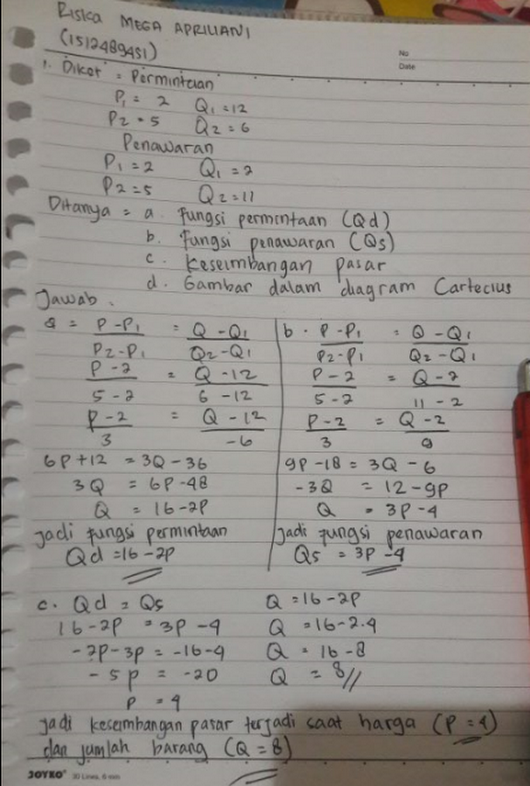 Risica MEGA APRILIANI
(1512489451)
No
Date
1. Diket = Permintaan
P₁ = 2 Q₁ = 12
P2 = 5 Q2 = 6
Penawaran
P₁ = 2 Q₁ = 2
P2 = 5 Q2 = 11
Ditanya = a. fungsi permintaan (Qd)
b. fungsi penawaran (Qs)
c. Keseimbangan pasar
d. Gambar dalam diagram Cartecius
Jawab.
a = P-P₁ / P2-P₁ = Q-Q₁ / Q2-Q₁
P-2 / 5-2 = Q-12 / 6-12
P-2 / 3 = Q-12 / -6
6P+12 = 3Q-36
3Q = 6P-48
Q = 16-2P
Jadi fungsi permintaan
Qd = 16-2P
b. P-P₁ / P2-P₁ = Q-Q₁ / Q2-Q₁
P-2 / 5-2 = Q-2 / 11-2
P-2 / 3 = Q-2 / 9
9P-18 = 3Q-6
-3Q = 12-9P
Q = 3P-4
Jadi fungsi penawaran
Qs = 3P-4
c. Qd = Qs
16-2P = 3P-4
-2P-3P = -16-4
-5P = -20
P = 4
Q = 16-2P
Q = 16-2.4
Q = 16-8
Q = 8//
Jadi keseimbangan pasar terjadi saat harga (P=4)
dan jumlah barang (Q=8)
JOYKO 30 Lines, 6 mm